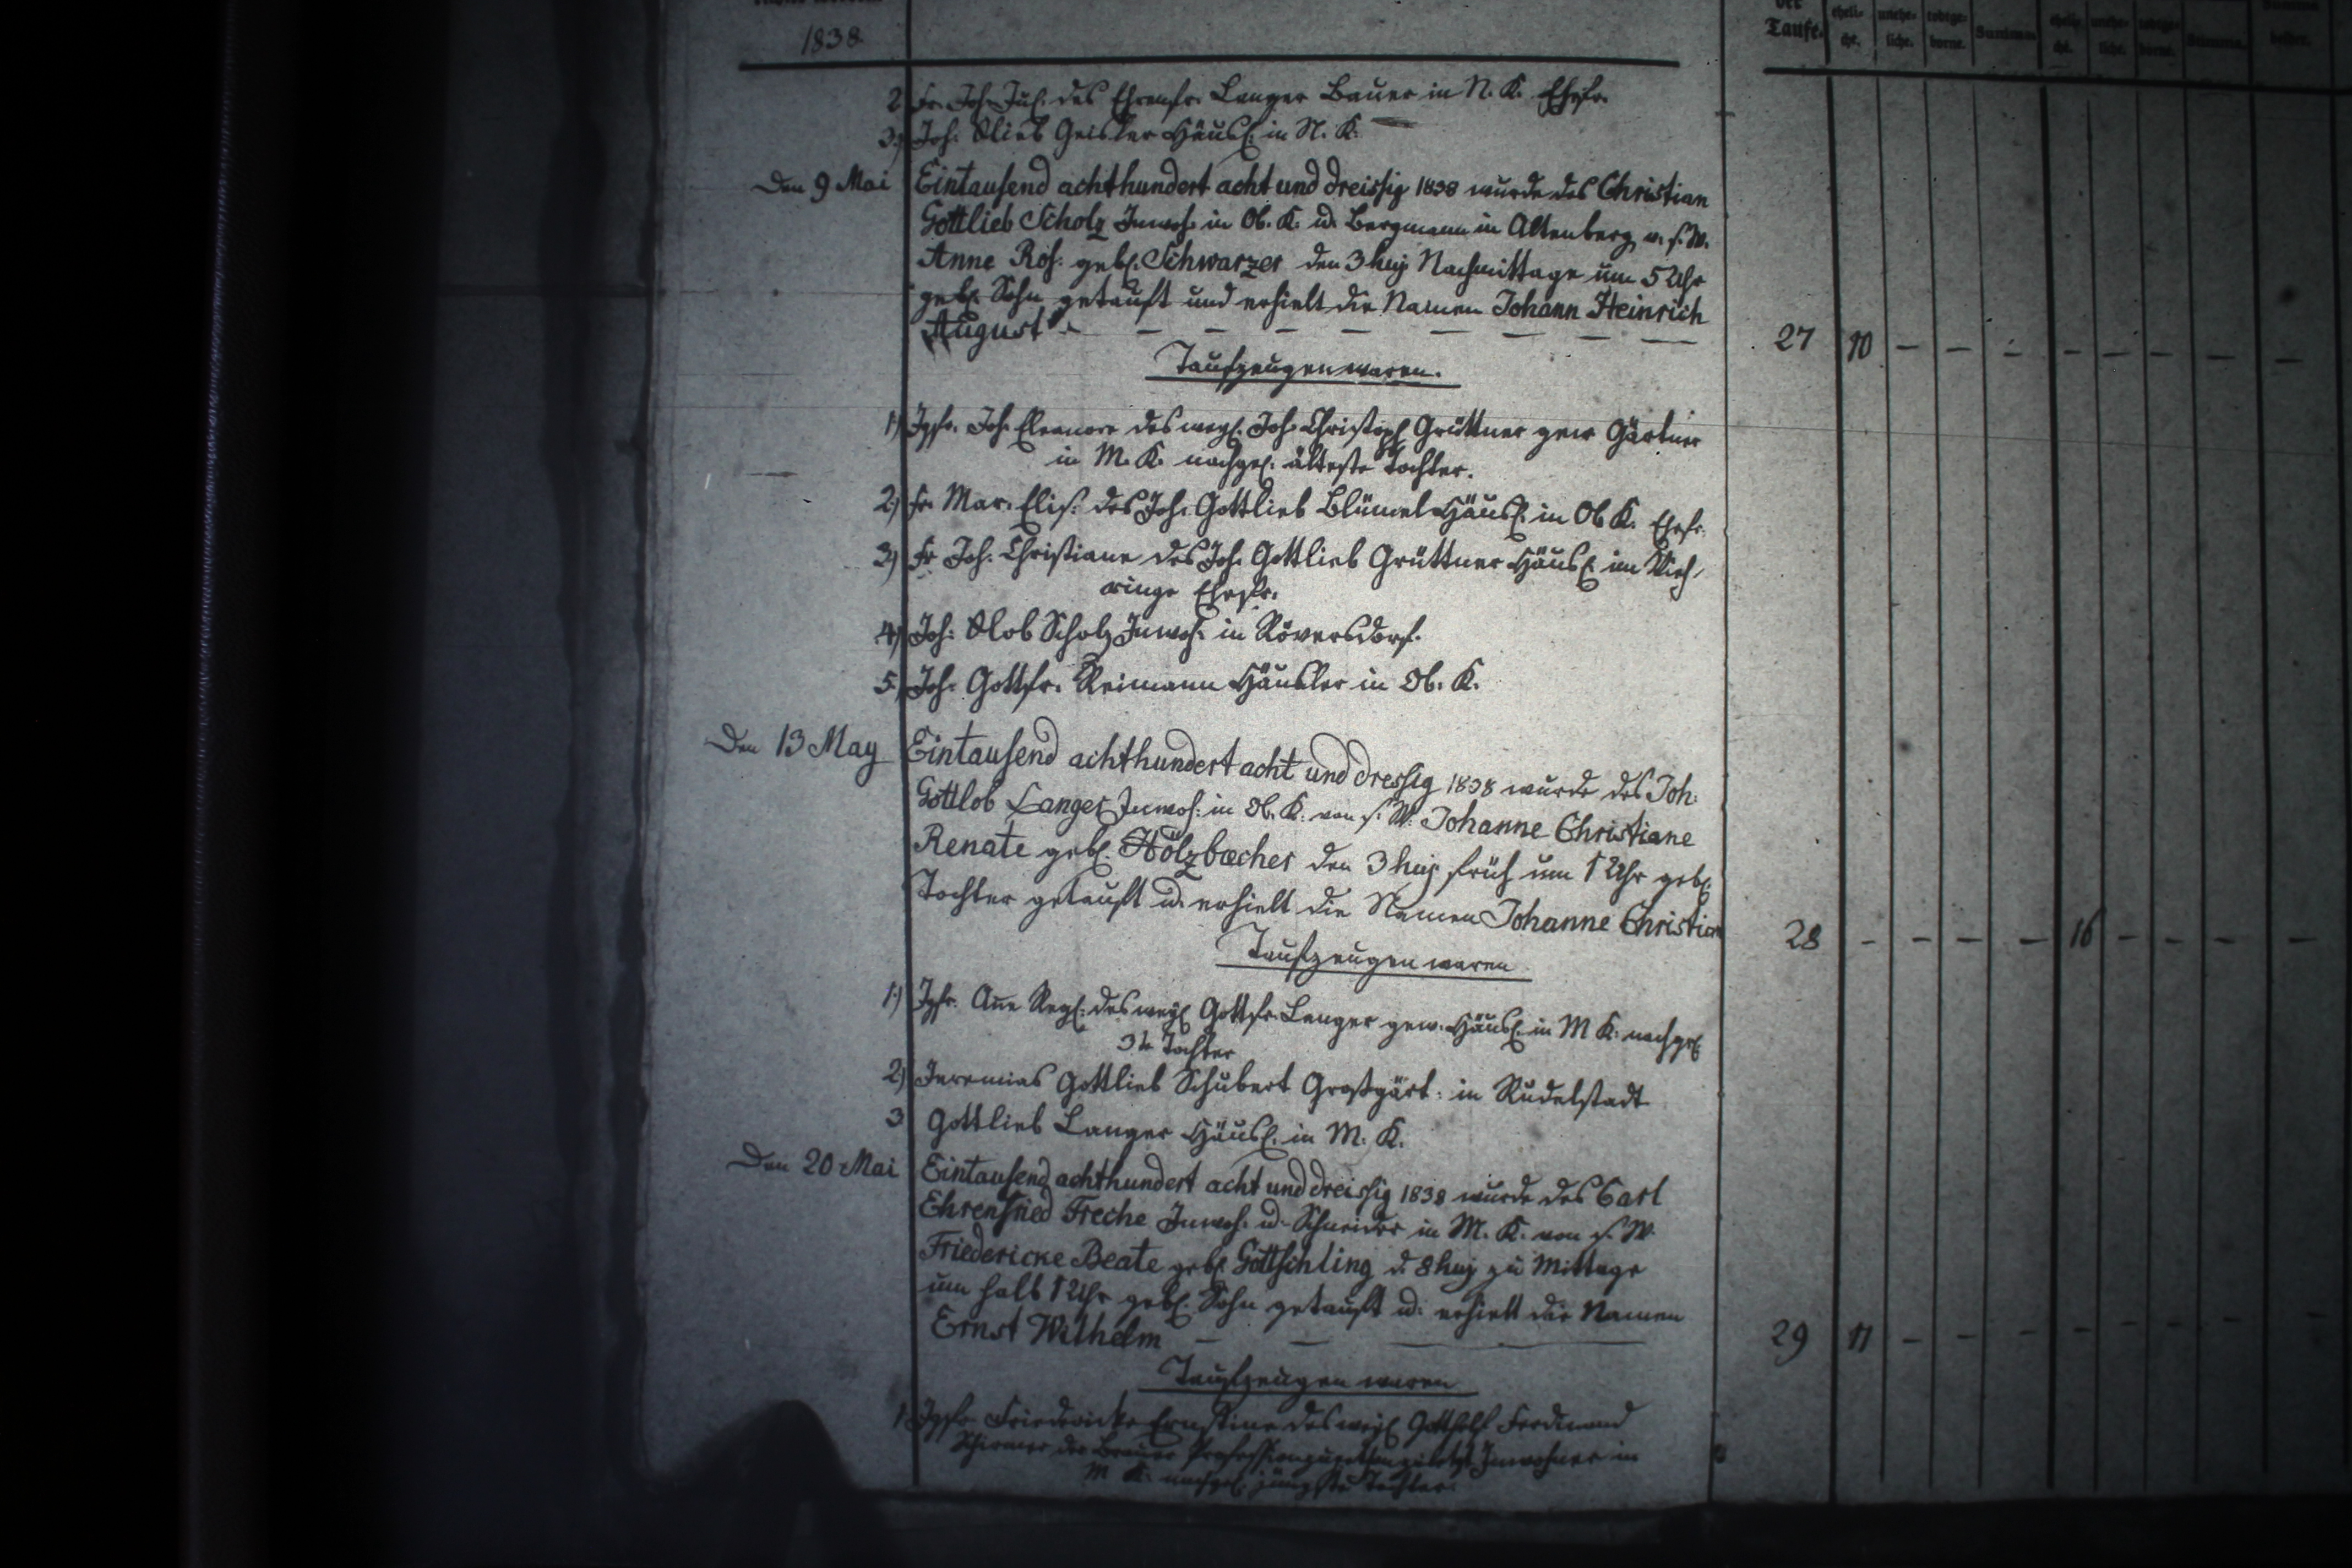 1838
der Taufe. eheli-che. unehe-liche. todtge-borne. Summa. eheli-che. unehe-liche. todtge-borne. Summa.
2 Fr. Joh. Jul. des Ehrenfr. Langer Bauer in N. K. Ehefr.
3.) Joh. Glieb Geisler Häusl. in N. K.
Den 9 Mai Eintausend achthundert acht und dreissig 1838 wurde des Christian
Gottlieb Scholz Inwoh. in Ob. K. u. Bergmann in Altenberg v. s. W.
Anne Ros. geb. Schwarzer den 3 huj Nachmittage um 5 Uhr
geb. Sohn getauft und erhielt die Namen Johann Heinrich
August. 27 10 – – – – – – – –
Taufzeugen waren.
1) Jgfr. Joh. Eleonore des weyl. Joh. Christoph Grüttner gew Gärtner
in M. K. nachgel. älteste Tochter.
2.) Fr. Mar. Elis. des Joh. Gottlieb Blümel Häusl. in Ob K. Ehefr.
3) Fr Joh. Christiane des Joh. Gottlieb Grüttner Häusl. im Vieh-
ringe Ehefr.
4) Joh. Glob Scholz Inwoh. in Röversdorf.
5.) Joh. Gottfr. Reimann Häusler in Ob. K.
Den 13 May Eintausend achthundert acht und dressig 1838 wurde des Joh.
Gottlob Langer Inwoh. in Ob. K. von s. W. Johanne Christiane
Renate geb. Hölzbecher den 3 huj früh um 1 Uhr geb.
Tochter getauft u. erhielt die Namen Johanne Christian
28 – – – – 16 – – – –
Taufzeugen waren
1.) Jgfr. Ane Regl. des weyl Gottfr. Langer gew. Häusl. in M K. nachgel
3te Tochter
2) Jeremias Gottlieb Schubert Großgärt. in Rudelstadt
3 Gottlieb Langer Häusl. in M. K.
Den 20 Mai Eintausend achthundert acht und dreissig 1838 wurde des Carl
Ehrenfried Freche Inwoh. u. Schneider in M. K. von s. W.
Friedericke Beate geb. Göttschling d. 8 huj zu Mittage
um halb 1 Uhr geb. Sohn getauft u. erhielt die Namen
Ernst Wilhelm 29 11 – – – – – – –
Taufzeugen waren
1. Jgfr. Friedericke Ernstine des weyl Gotthelf Ferdinand
Schirmer der Brauer Profession zuletzt Inwohner in
M K. nachgel. jüngste Tochter.